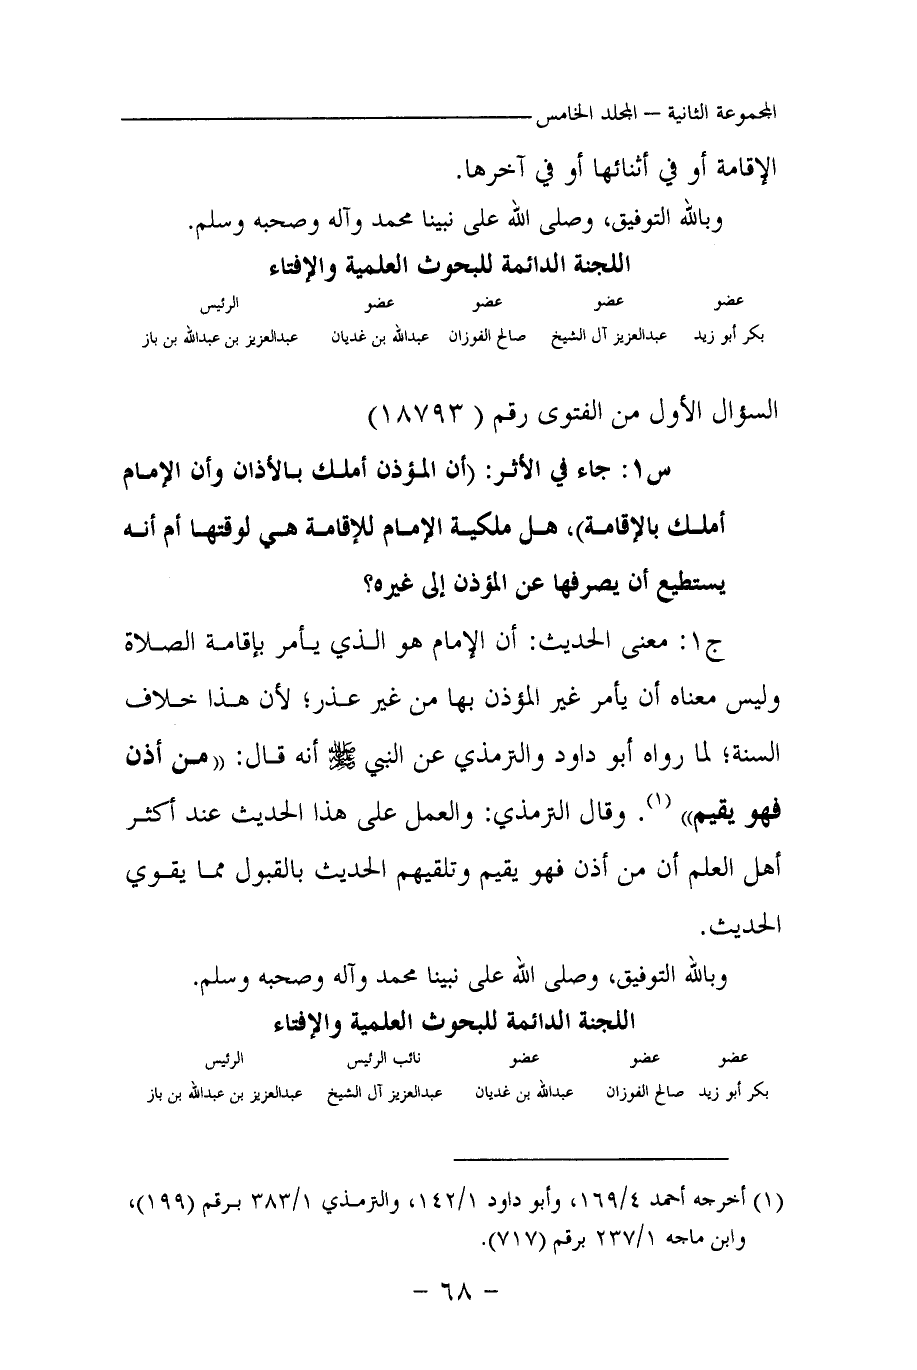 المجموعة الثانية – المجلد الخامس
الإقامة أو في أثنائها أو في آخرها.
وبالله التوفيق، وصلى الله على نبينا محمد وآله وصحبه وسلم.
اللجنة الدائمة للبحوث العلمية والإفتاء
عضو عضو عضو عضو الرئيس
بكر أبو زيد عبدالعزيز آل الشيخ صالح الفوزان عبدالله بن غديان عبدالعزيز بن عبدالله بن باز
السؤال الأول من الفتوى رقم ( ١٨٧٩٣)
س١: جاء في الأثر: (أن المؤذن أملك بالأذان وأن الإمام
أملك بالإقامة)، هل ملكية الإمام للإقامة هي لوقتها أم أنه
يستطيع أن يصرفها عن المؤذن إلى غيره؟
ج١: معنى الحديث: أن الإمام هو الذي يأمر بإقامة الصلاة
وليس معناه أن يأمر غير المؤذن بها من غير عذر؛ لأن هذا خلاف
السنة؛ لما رواه أبو داود والترمذي عن النبي ﷺ أنه قال: «من أذن
فهو يقيم» (١). وقال الترمذي: والعمل على هذا الحديث عند أكثر
أهل العلم أن من أذن فهو يقيم وتلقيهم الحديث بالقبول مما يقوي
الحديث.
وبالله التوفيق، وصلى الله على نبينا محمد وآله وصحبه وسلم.
اللجنة الدائمة للبحوث العلمية والإفتاء
عضو عضو عضو نائب الرئيس الرئيس
بكر أبو زيد صالح الفوزان عبدالله بن غديان عبدالعزيز آل الشيخ عبدالعزيز بن عبدالله بن باز
(١) أخرجه أحمد ١٦٩/٤، وأبو داود ١٤٢/١، والترمذي ٣٨٣/١ برقم (١٩٩)،
وابن ماجه ٢٣٧/١ برقم (٧١٧).
- ٦٨ -